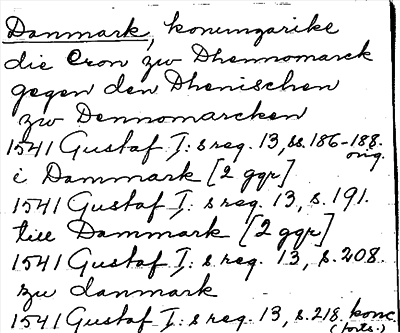 Danmark, konungarike
die Cron zw Dhennomarck
gegen den Dhenischen
zw Dennomarcken
1541 Gustaf I: s reg. 13, ss. 186-188. orig.
i Dammark [2 ggr]
1541 Gustaf I: s reg. 13, s. 191.
till Dammark [2 ggr]
1541 Gustaf I: s reg. 13, s. 208.
zu danmark
1541 Gustaf I: s reg. 13, s. 218. konc.
(forts.)